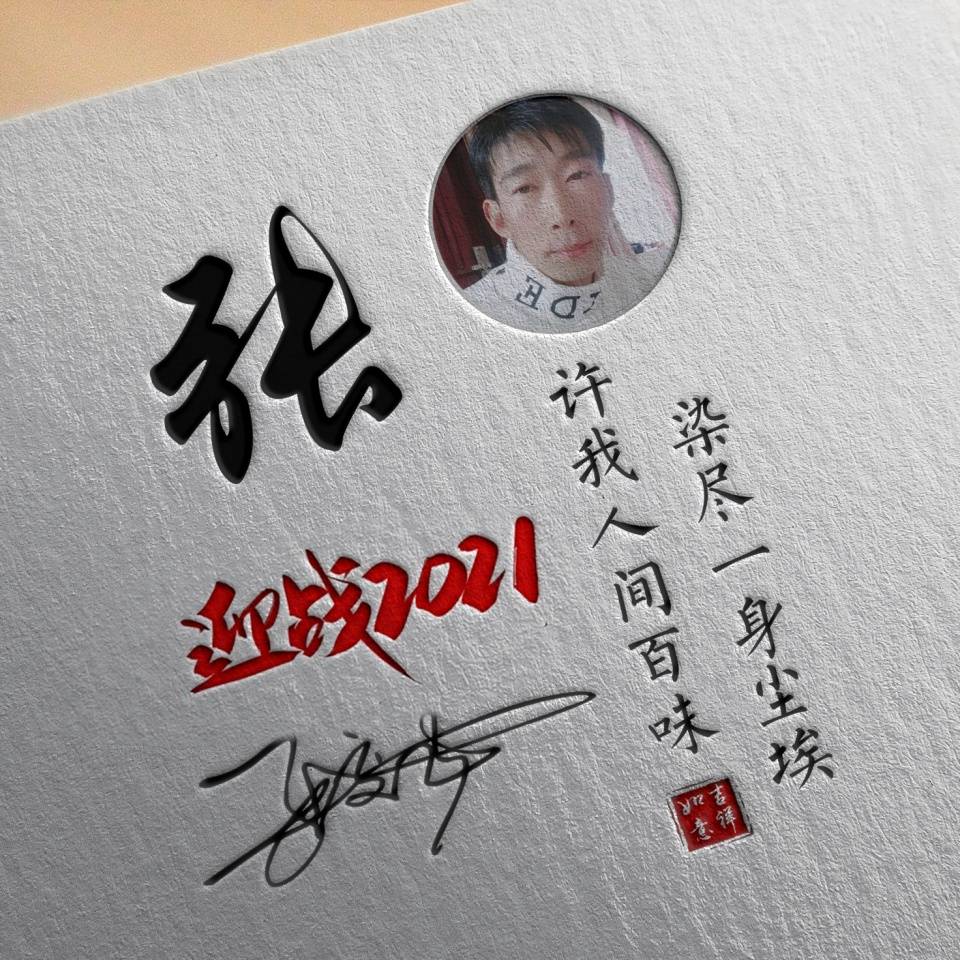 张
迎战2021
染尽一身尘埃
许我人间百味
吉祥
如意